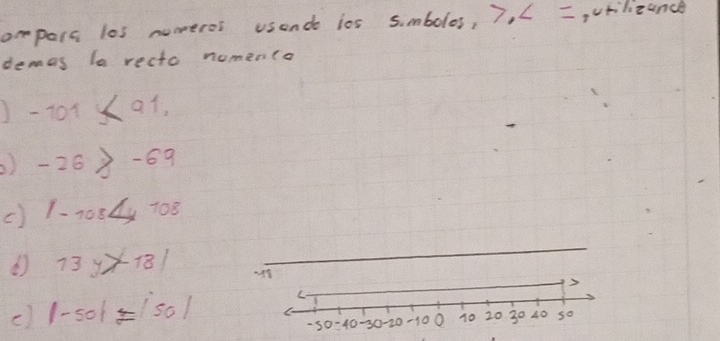 ompara los numeros usando los simbolos, >,< =, utilizando
demas la recta numerica
) -101 < 91.
b) -26 > -69
c) |-108 < y 108
d) 13 y > -18|
e) |-50| = |50|
-50 -40 -30 -20 -10 0 10 20 30 40 50